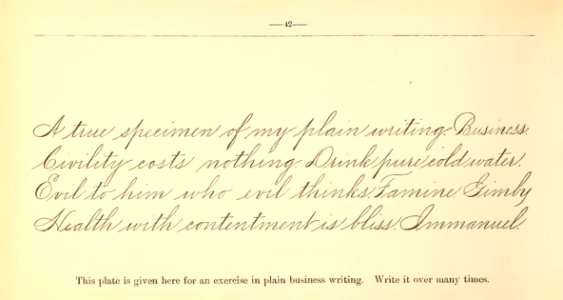 —42—
A true specimen of my plain writing. Business.
Civility costs nothing. Drink pure cold water.
Evil to him who evil thinks. Famine. Gimby
Health with contentment is bliss. Immanuel.
This plate is given here for an exercise in plain business writing. Write it over many times.